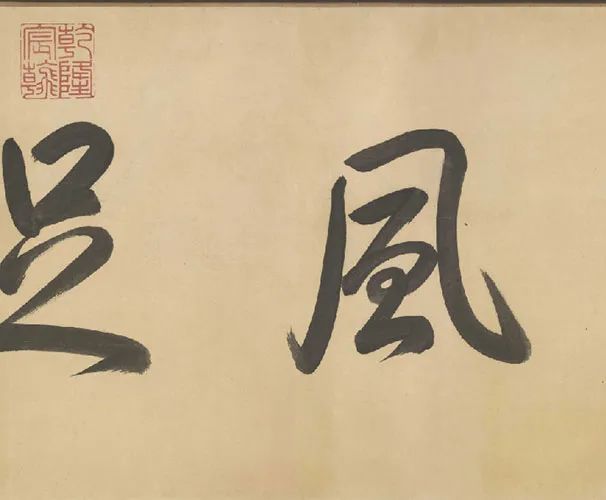 乾隆宸翰
風足